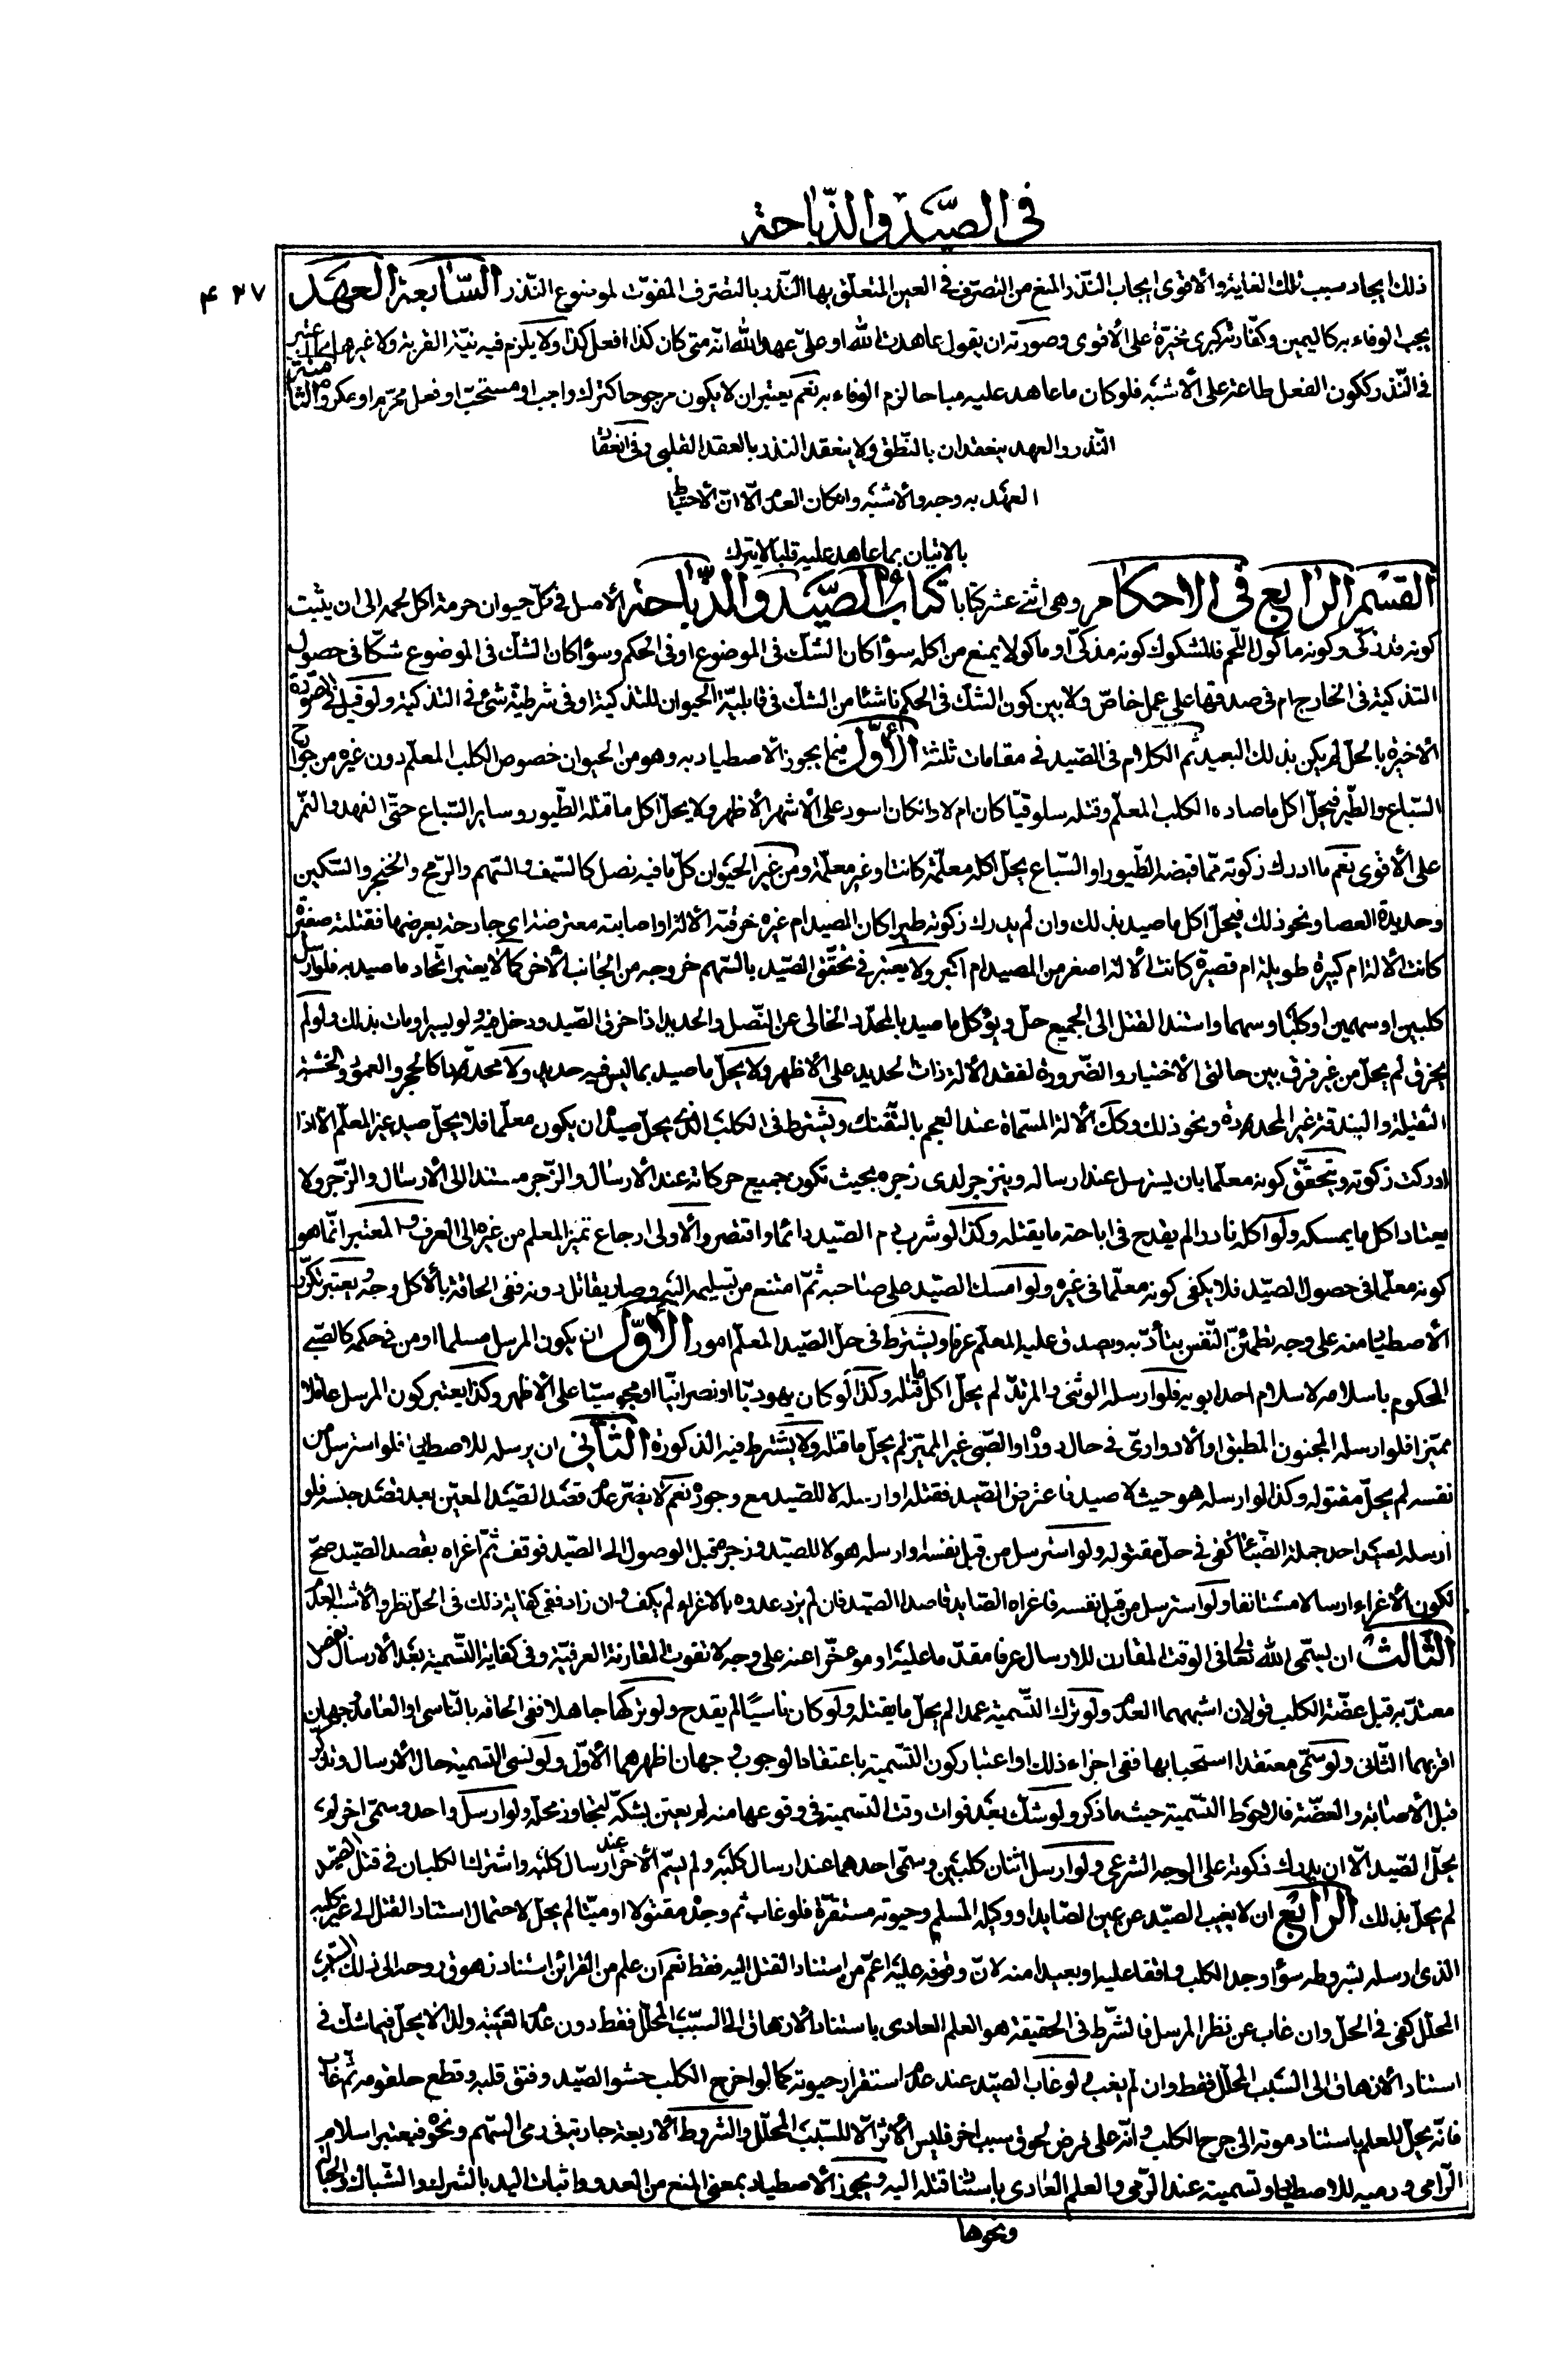 في الصّيد والذّباحة
۴۲۷
ذلك ايجاد سبب تلك الغاية والأقوى ايجاب النّذر المنع من التصرّف في العين المتعلّق بها النّذر بالتصرف المفوّت لموضوع النّذر السّابعة العهد
يجب الوفاء به كاليمين وكفّارته كبرى مخيّرة على الأقوى وصورته ان يقول عاهدت الله او علىّ عهد الله انّه متى كان كذا افعل كذا ولا يلزم فيه نيّة القربة ولا غيرها مما اعتبر
في النّذر ككون الفعل طاعة على الأشبه فلو كان ما عاهد عليه مباحا لزم الوفاء به نعم يعتبر ان لا يكون مرجوحا كترك واجب او مستحبّ او فعل محرّم او مكروه الثامنة
النّذر والعهد ينعقدان بالنّطق ولا ينعقد النذر بالعقد القلبي وفي انعقاد
العهد به وجه والاشبه وان كان العدم الّا انّ الأحتياط
بالاتيان بما عاهد عليه قلبا لا يترك
القسم الرّابع في الاحكام وهى اثنى عشر كتابا كتاب الصّيد والذّباحة الأصل في كلّ حيوان حرمة اكل لحمه الى ان يثبت
كونه قد ذكّى وكونه مأكول اللّحم فالمشكوك كونه مذكّى أو مأكولا يمنع من اكله سواء كان الشكّ في الموضوع او في الحكم وسواء كان الشك في الموضوع شكّا في حصول
التذكية في الخارج ام في صدقها على عمل خاصّ ولا بين كون الشك في الحكم ناشئا من الشك في قابليّة الحيوان للتذكية او في شرطيّة شئ في التذكية ولو قيل في الصّورة
الأخيرة بالحلّ لم يكن بذلك البعيد ثم الكلام في الصّيد في مقامات ثلثة الأوّل فيما يجوز الأصطياد به وهو من الحيوان خصوص الكلب المعلّم دون غيره من جوارح
السّباع والطّير فيحلّ اكل ما صاده الكلب المعلّم وقتله سلوقيّا كان ام لا وان كان اسود على الأشهر الأظهر ولا يحلّ اكل ما قتله الطّيور وساير السّباع حتّى الفهد والنّمر
على الأقوى نعم ما ادرك ذكوته ممّا قبضه الطّيور او السّباع يحلّ اكله معلّمة كانت او غير معلّمة ومن غير الحيوان كلّ ما فيه نصل كالسّيف والسّهم والرّمح والخنجر والسّكين
وحديدة العصا ونحو ذلك فيحلّ اكل ما صيد بذلك وان لم يدرك ذكوته طيرا كان المصيد ام غيره خرقته الألة او اصابته معترضة اى جارحة بعرضها فقتلته صغيرة
كانت الألة ام كبيرة طويلة ام قصيرة كانت الألة اصغر من المصيد ام اكبر ولا يعتبر في تحقّق الصّيد بالسّهم خروجه من الجانب الأخر كما لا يعتبر اتّحاد ما صيد به فلو ارسل
كلبين او سهمين او كلبا وسهما واستند القتل الى الجميع حلّ ويؤكل ما صيد بالمحدّد الخالى عن النّصل والحديد اذا خرق الصّيد ودخل فيه ولو يسيرا ومات بذلك ولو لم
يخرق لم يحلّ من غير فرق بين حالتى الأختيار والضّرورة لفقد الألة ذات الحديد على الأظهر ولا يحلّ ما صيد بما ليس فيه حديد ولا محدّدا كالحجر والعمود والخشبة
الثقيلة والبندقة غير المحدّدة ونحو ذلك وكك الألة المسمّاة عند العجم بالتّفنك ويشترط في الكلب الّذى يحلّ صيده ان يكون معلّما فلا يحلّ صيد غير المعلّم الّا اذا
ادركت ذكوته ويتحقّق كونه معلّما بان يسترسل عند ارساله وينزجر لدى زجره بحيث تكون جميع حركاته عند الأرسال والزّجر مستندا الى الأرسال والزّجر ولا
يعتاد اكل ما يمسكه ولو اكل نادرا لم يقدح في اباحة ما يقتله وكذا لو شرب دم الصّيد دائما واقتصر والأولى ارجاع تميز المعلم من غيره الى العرف والمعتبر انّما هو
كونه معلّما في حصول الصّيد فلا يكفى كونه معلّما في غيره ولو امسك الصّيد على صاحبه ثمّ امتنع من تسليمه اليه وصار يقاتل دونه ففى الحاقه بالأكل وجه ويعتبر تكرّر
الأصطياد منه على وجه تطمئنّ النّفس بتأدّبه ويصدق عليه المعلّم عرفا ويشترط في حلّ الصّيد المعلّم امور الأوّل ان يكون المرسل مسلما او من في حكمه كالصّبي
المحكوم باسلامه لاسلام احد ابويه فلو ارسله الوثنى والمرتدّ لم يحلّ اكل ما قتله وكذا لو كان يهوديّا او نصرانيّا او مجوسيّا على الأظهر وكذا يعتبر كون المرسل عاقلا
مميّزا فلو ارسله المجنون المطبق او الأدوارىّ في حال دوره او الصّبي غير المميّز لم يحلّ ما قتله ولا يشترط فيه الذكورة الثّاني ان يرسله للاصطياد فلو استرسل من
نفسه لم يحلّ مقتوله وكذا لو ارسله هو حيث لا صيد فاعترض الصّيد فقتله او ارسله لا للصّيد مع وجوده نعم لا يضرّ عدم قصد الصّيد المعيّن بعد قصد جنسه فلو
ارسله لصيد احد جملة الضّباء كفى في حلّ مقتوله ولو استرسل من قبل نفسه او ارسله هو لا للصّيد وزجره قبل الوصول الى الصّيد فوقف ثمّ اغراه بقصد الصّيد صحّ
لكون الأغراء ارسالا مستانفا ولو استرسل من قبل نفسه فاغراه الصّايد قاصدا الصّيد فان لم يزد عدوه بالاغراء لم يكف وان زاد ففى كفاية ذلك في الحلّ نظر والأشبه العدم
الثّالث ان يسمّى الله تعالى في الوقت المقارن للارسال عرفا مقدّما عليه او مؤخّرا عنه على وجه لا تفوت المقارنة العرفيّة وفي كفاية التّسمية بعد الأرسال بفصل
معتدّ به قبل عضّة الكلب قولان اشبههما العدم ولو ترك التّسمية عمدا لم يحلّ ما يقتله ولو كان ناسيًا لم يقدح ولو تركها جاهلا ففى الحاقه بالنّاسى او العامد وجهان
اقربهما الثّانى ولو سمّى معتقدا استحبابها ففى اجزاء ذلك او اعتبار كون التّسمية باعتقاد الوجوب وجهان اظهرهما الأوّل ولو نسى التسمية حال الأرسال وتذكّر
قبل الأصابة والعضّة فالاحوط التّسمية حيث ما ذكر ولو شك بعد فوات وقت التّسمية في وقوعها منه لم يعتن بشكّه لتجاوز محلّه ولو ارسل واحد وسمّى اخر لم
يحلّ الصّيد الّا ان يدرك ذكوته على الوجه الشرعى ولو ارسل اثنان كلبين وسمّى احدهما عند ارسال كلبه ولم يسمّ الأخر عند ارسال كلبه واشترك الكلبان في قتل الصّيد
لم يحلّ بذلك الرّابع ان لا يغيب الصّيد عن عين الصّايد او وكيله المسلم وحيوته مستقرّة فلو غاب ثم وجده مقتولا او ميّتا لم يحلّ لاحتمال استناد القتل الى غير كلبه
الذى ارسله بشروطه سواء وجد الكلب واقفا عليه او بعيدا منه لانّ وقوفه عليه اعمّ من استناد القتل اليه فقط نعم ان علم من القرائن استناد زهوق روحه الى ذلك السّبب
المحلّل كفى في الحلّ وان غاب عن نظر المرسل فالشّرط في الحقيقة هو العلم العادى باستناد الأزهاق الى السّبب المحلّل فقط دون عدم الغيبة ولذا لا يحلّ فيما شك في
استناد الأزهاق الى السّبب المحلّل فقط وان لم يغب ولو غاب الصّيد عند عدم استقرار حيوته كما لو اخرج الكلب حشو الصّيد وفتق قلبه وقطع حلقومه ثمّ غاب
فانّه يحلّ للعلم باستناد موته الى جرح الكلب وانّه على فرض لحوق سبب اخر فليس الأثر الّا للسّبب المحلّل والشّروط الأربعة جارية في رمى السّهم ونحوه فيعتبر اسلام
الرّامى ورميه للاصطياد وتسميته عند الرّمى والعلم العادى باستناد قتله اليه ويجوز الأصطياد بمعنى المنع من العدو واثبات اليد بالشرك والشّباك والحبالة
ونحوها